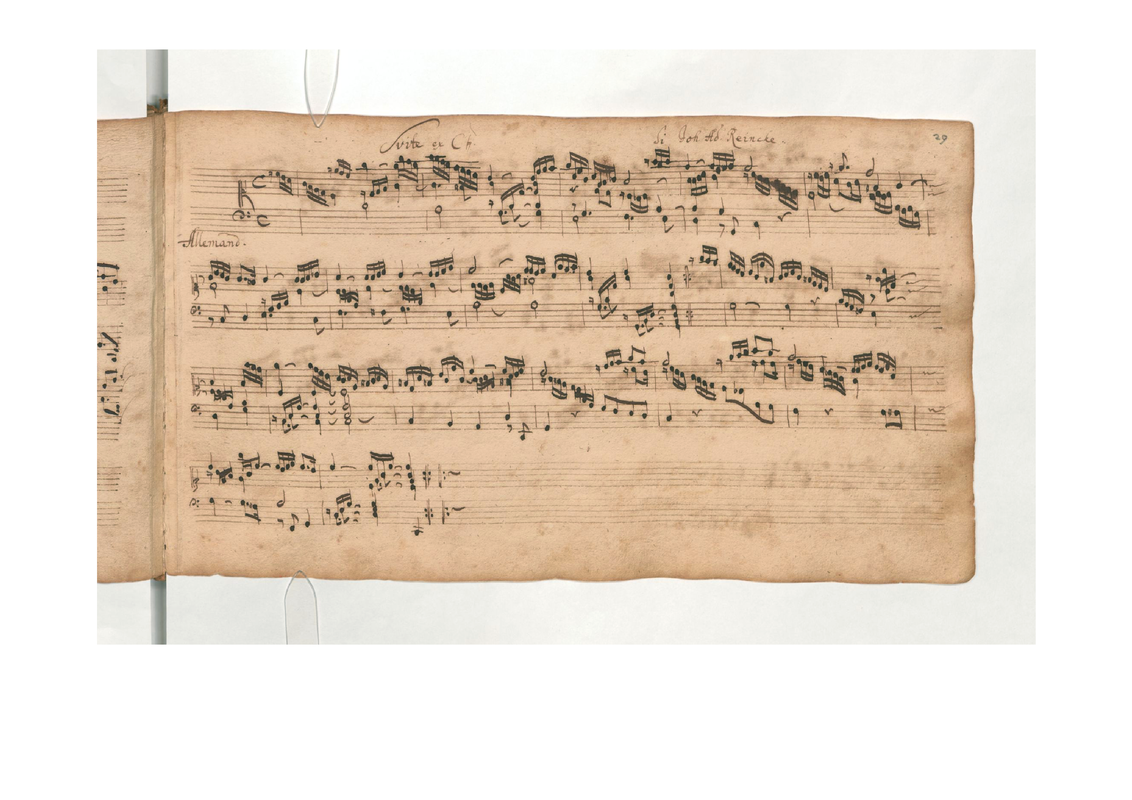 Svite ex C♮. Di Joh. Ad. Reincke. 29
Allemand.